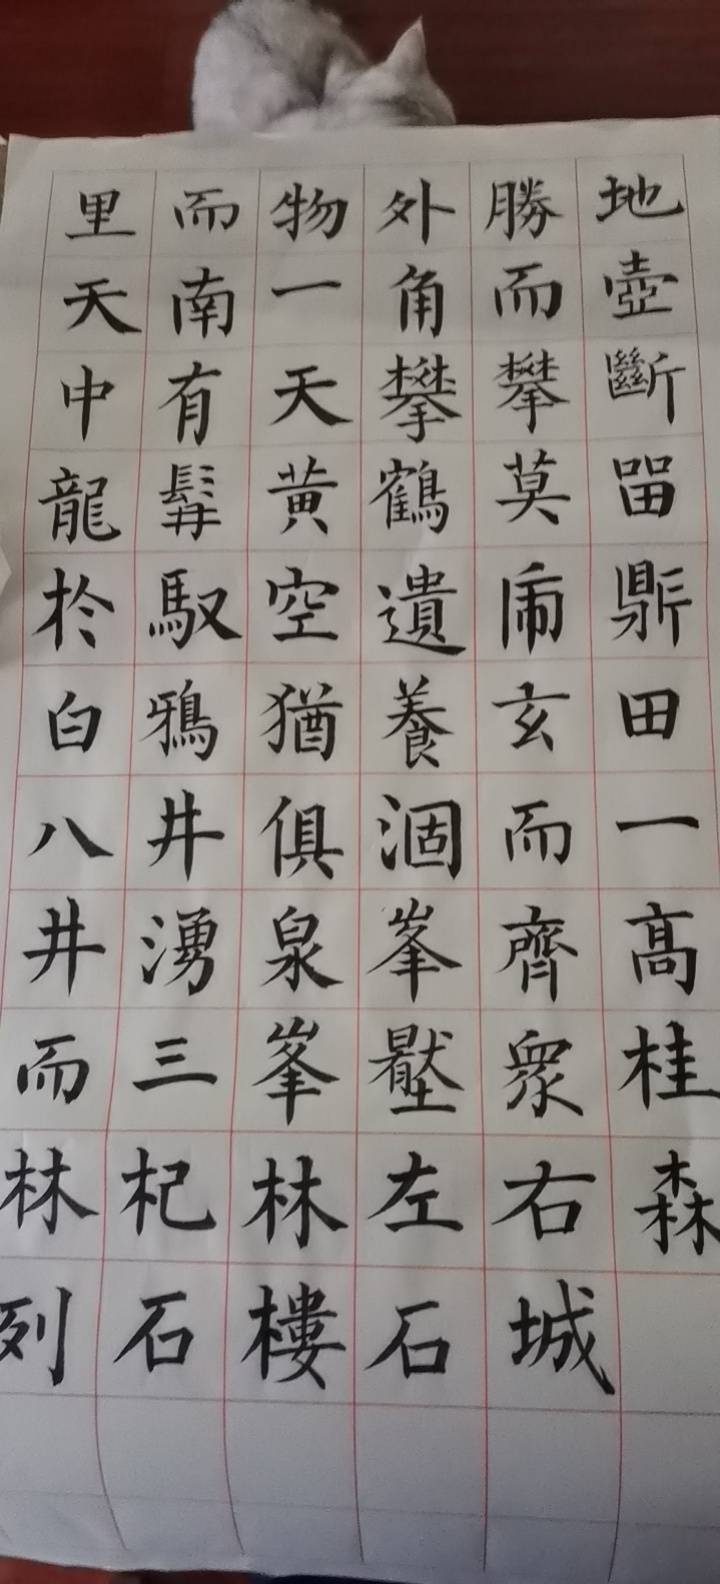 里而物外勝地
天南一角而壺
中有天攀攀斷
龍髯黄鶴莫畱
於馭空遺
白鴉猶養玄田
八井俱涸而一
井湧泉峯齊高
而三峯壓衆桂
林杞林左右森
列石樓石城